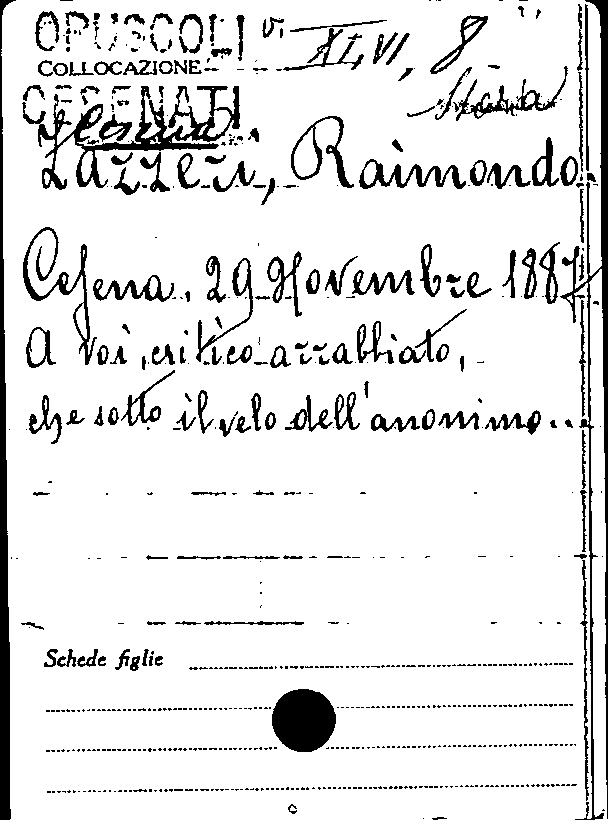 OPUSCOLI v. XLVI, 8
COLLOCAZIONE
CESENATI
Lazzeri, Raimondo.
Cesena, 29 Novembre 1887
A voi, critico arrabbiato,
che sotto il velo dell'anonimo...
Schede figlie